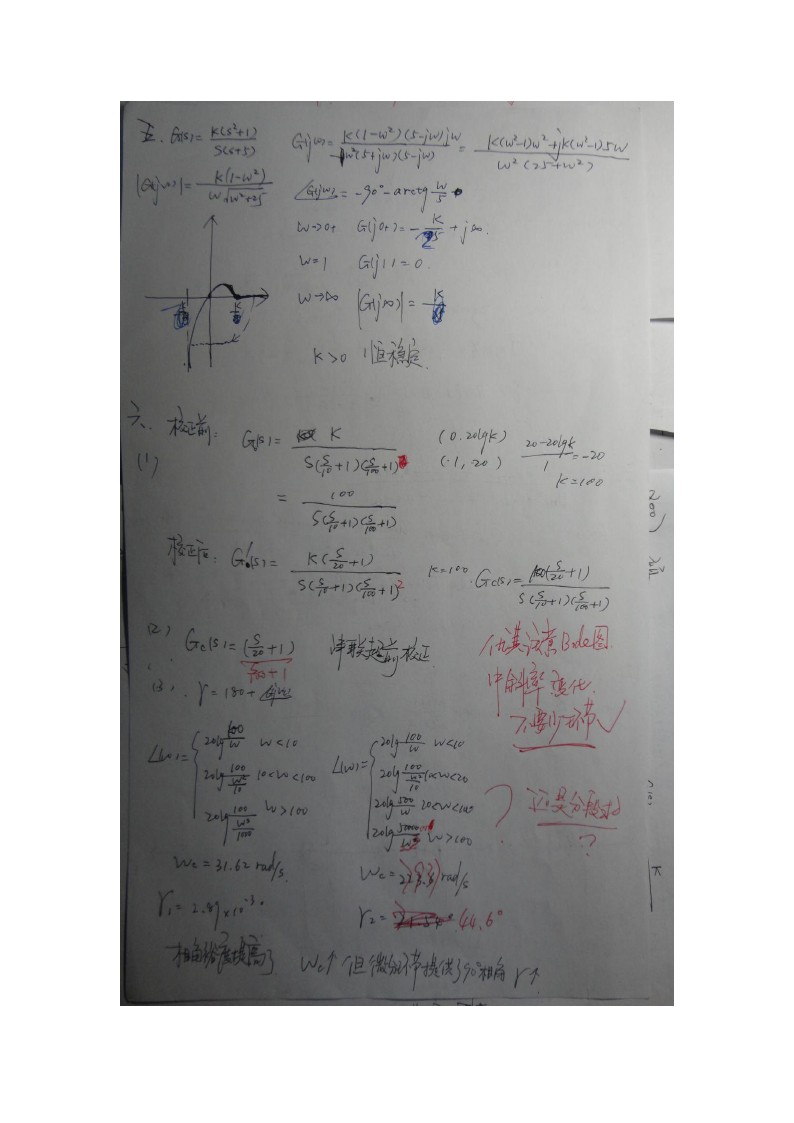 五、G(s)=K(s²+1)/S(s+5) G(jω)=K(1-ω²)(5-jω)jω/-ω²(5+jω)(5-jω)=K(ω²-1)ω²+jK(ω²-1)5ω/ω²(25+ω²)
|G(jω)|=K(1-ω²)/ω√ω²+25 ∠G(jω)=-90°-arctg ω/5
ω→0+ G(j0+)=-K/25+j∞.
ω=1 G(j1)=0.
ω→∞ |G(j∞)|=
K>0 恒稳定.
六、校正前: G(s)=K/S(S/10+1)(S/100+1)² (0.20lgK) 20-20lgK/1=-20
(1) (.1,20) K=100
=100/S(S/10+1)(S/100+1)
校正后: G'(s)=K(S/20+1)/S(S/10+1)(S/100+1)² K=100 .Gc(s)=100(S/20+1)/S(S/10+1)(S/100+1)
(2) Gc(s)=(S/20+1)/S/100+1 串联超前校正
仔其注意Bode图
中斜率变化.
不要少环节
(3). γ=180+∠G(jω)
L(ω)={20lg 100/ω ω<10 L(ω)={20lg 100/ω ω<10
20lg 100/ω²/10 10<ω<100 20lg 100/ω²/10 10<ω<20
20lg 100/ω³/1000 ω>100 20lg 500/ω 20<ω<100
20lg 50000/ω² ω>100
? 还是分段求
?
ωc=31.62 rad/s. ωc= rad/s
γ1=2.89×10⁻³° γ2= 44.6°
相角裕度提高了 ωc↑ 但微分环节提供了90°相角 γ↑